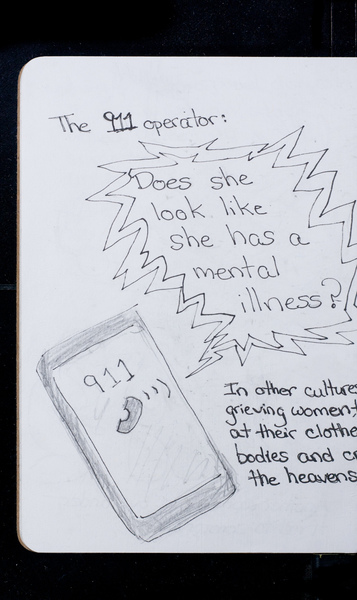 The 911 operator:
Does she
look like
she has a
mental
illness?
911
In other cultures
grieving women
at their clothe
bodies and
the heavens